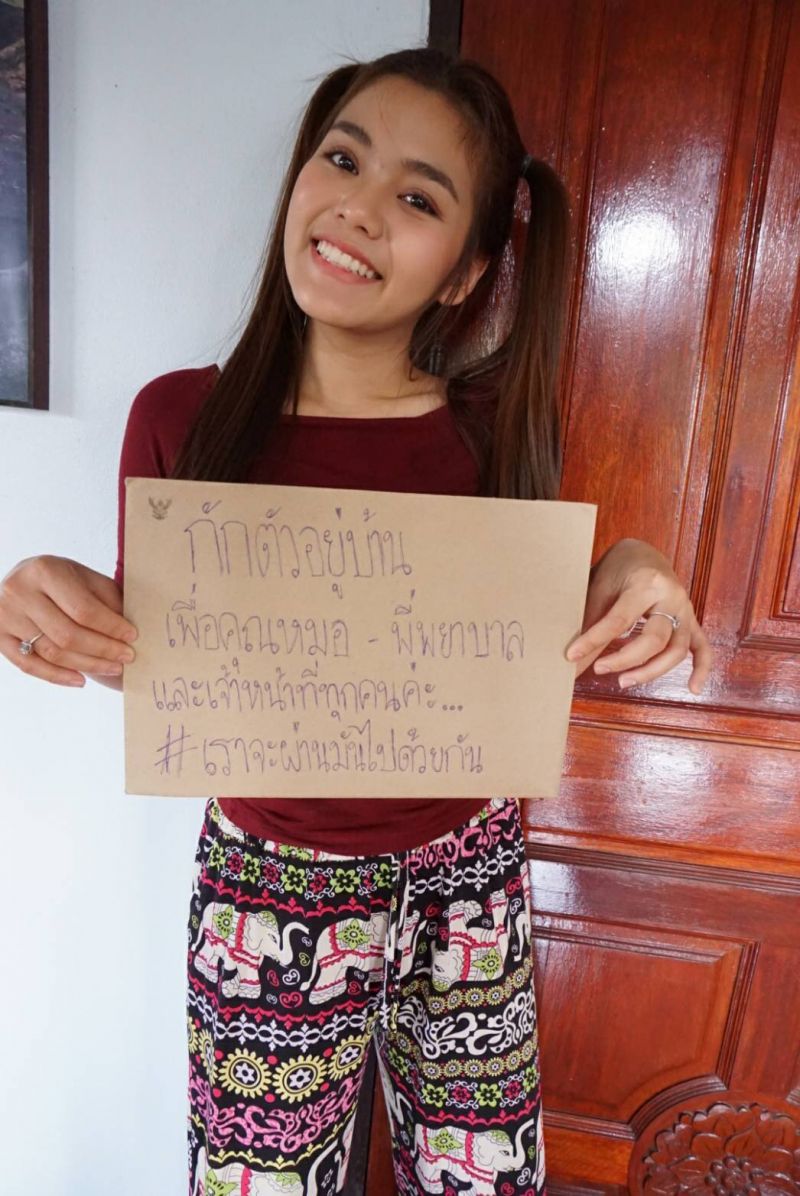 กักตัวอยู่บ้าน
เพื่อคุณหมอ - พี่พยาบาล
และเจ้าหน้าที่ทุกคนค่ะ...
#เราจะผ่านมันไปด้วยกัน